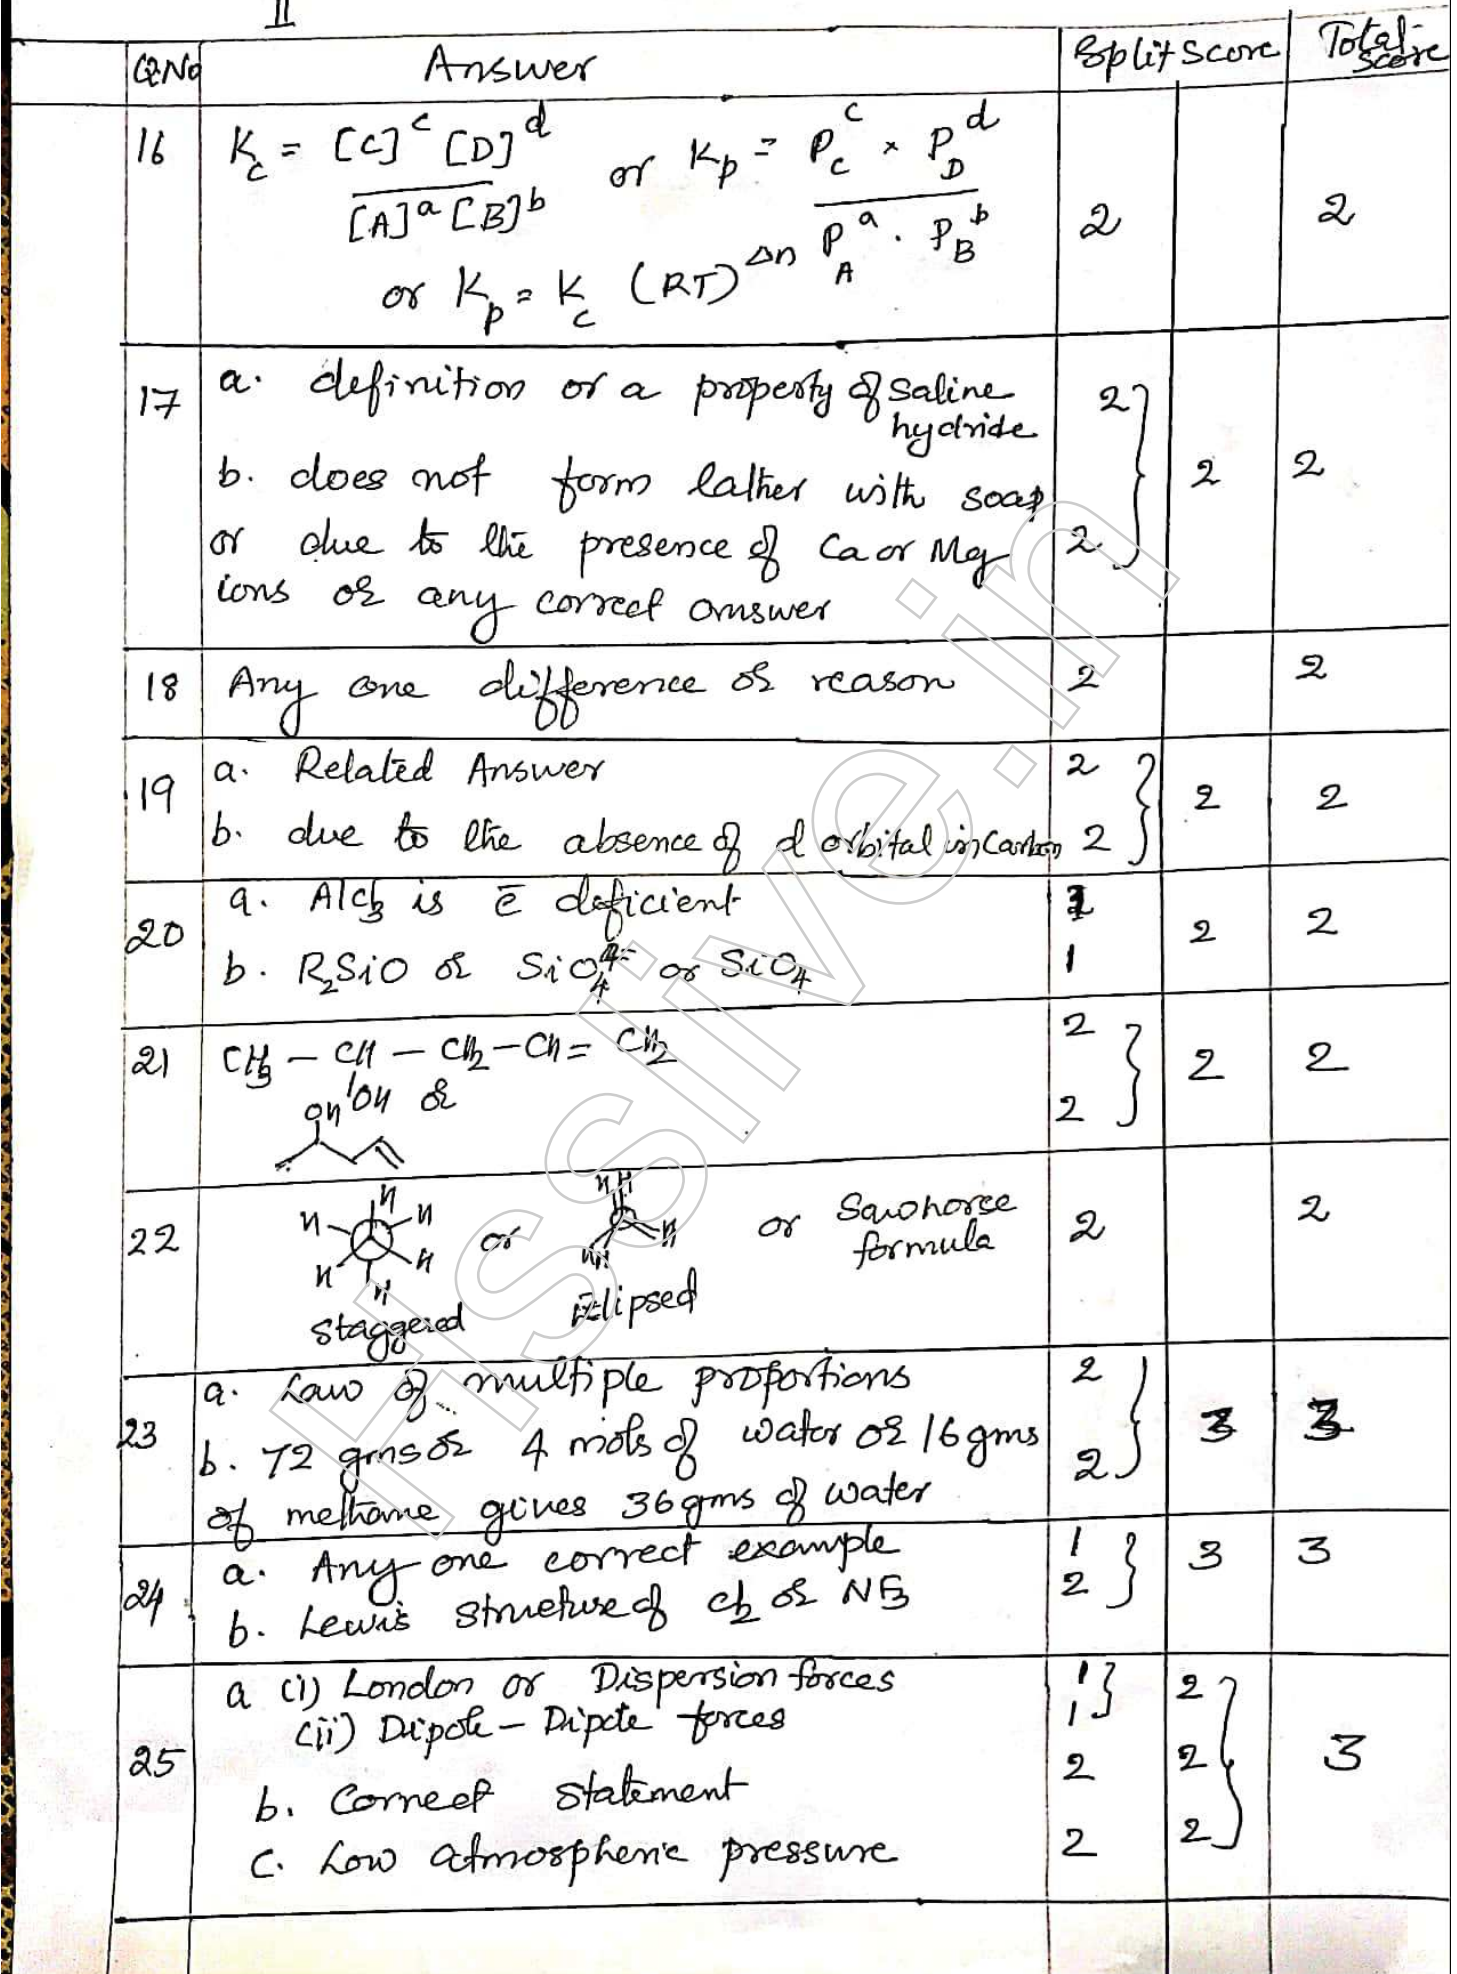 II
Q.No Answer Split Score Total score
16 Kc = [C]^c [D]^d / [A]^a [B]^b or Kp = P_C^c × P_D^d / P_A^a . P_B^b 2 2
or Kp = Kc (RT)^Δn
17 a. definition or a property of saline hydride 2
b. does not form lather with soap 2 2
or due to the presence of Ca or Mg 2
ions or any correct answer
18 Any one difference or reason 2 2
19 a. Related Answer 2
b. due to the absence of d orbital in Carbon 2 2 2
20 a. AlCl3 is ē deficient 1
b. R2SiO or SiO4^4- or SiO4 1 2 2
21 CH3 – CH – CH2 – CH = CH2 2 2 2
OH or 2
OH
22 H H H H H H or H H H H or Sawhorse formula 2 2
Staggered Eclipsed
23 a. Law of multiple proportions 2
b. 72 gms or 4 mols of water or 16 gms 2 3 3
of methane gives 36 gms of water
24 a. Any one correct example 1 3 3
b. Lewis structure of Cl2 or NF3 2
25 a (i) London or Dispersion forces 1 2
(ii) Dipole – Dipole forces 1
b. Correct statement 2 2 3
c. Low atmospheric pressure 2 2
Hsslive.in